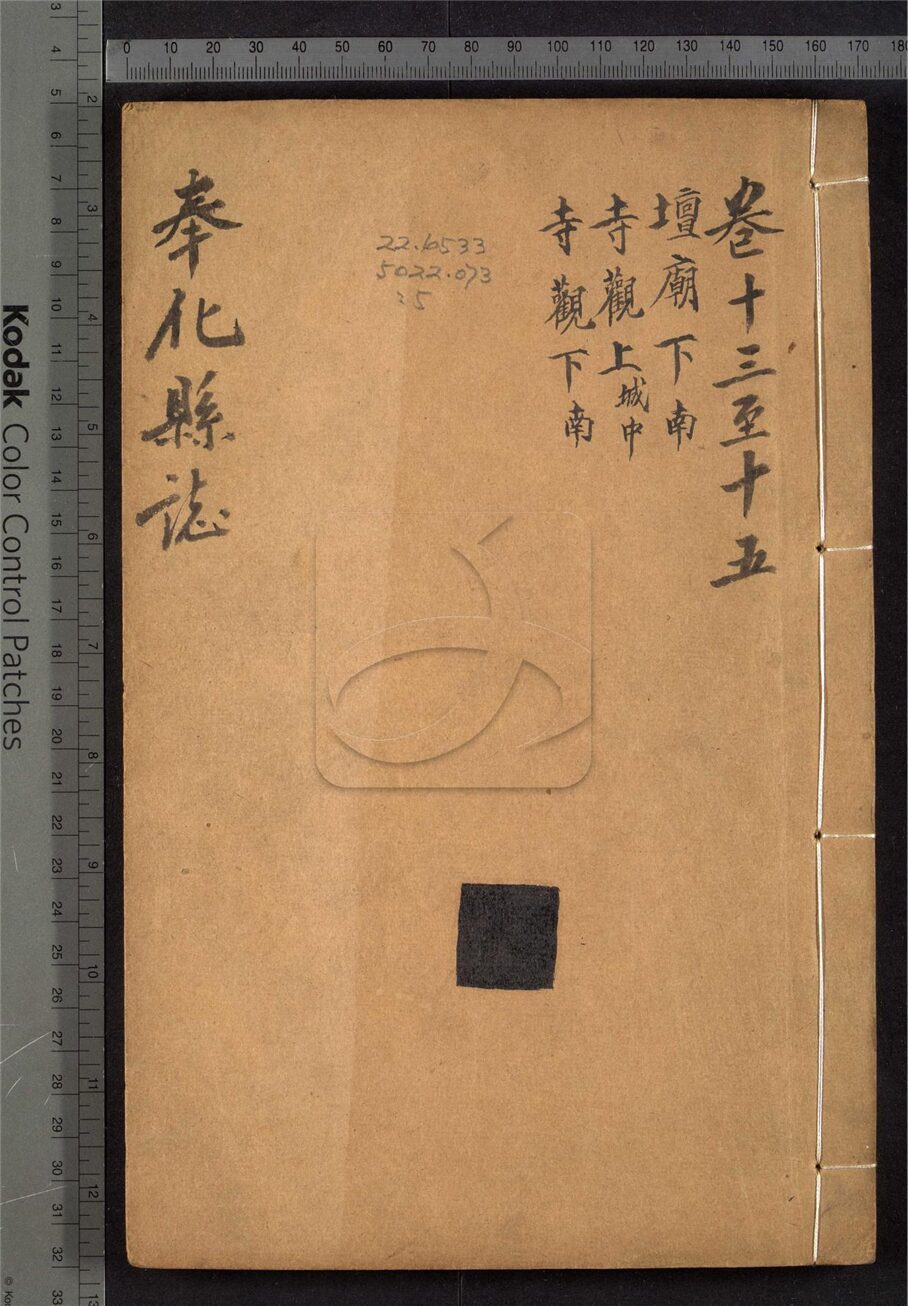 卷十三至十五
壇廟下南
寺觀上城中
寺觀下南
22.6533
5022.073
:5
奉化縣誌
Kodak Color Control Patches
0 10 20 30 40 50 60 70 80 90 100 110 120 130 140 150 160 170 180
3 4 5 6 7 8 9 10 11 12 13 14 15 16 17 18 19 20 21 22 23 24 25 26 27 28 29 30 31 32 33
2 3 4 5 6 7 8 9 10 11 12 13